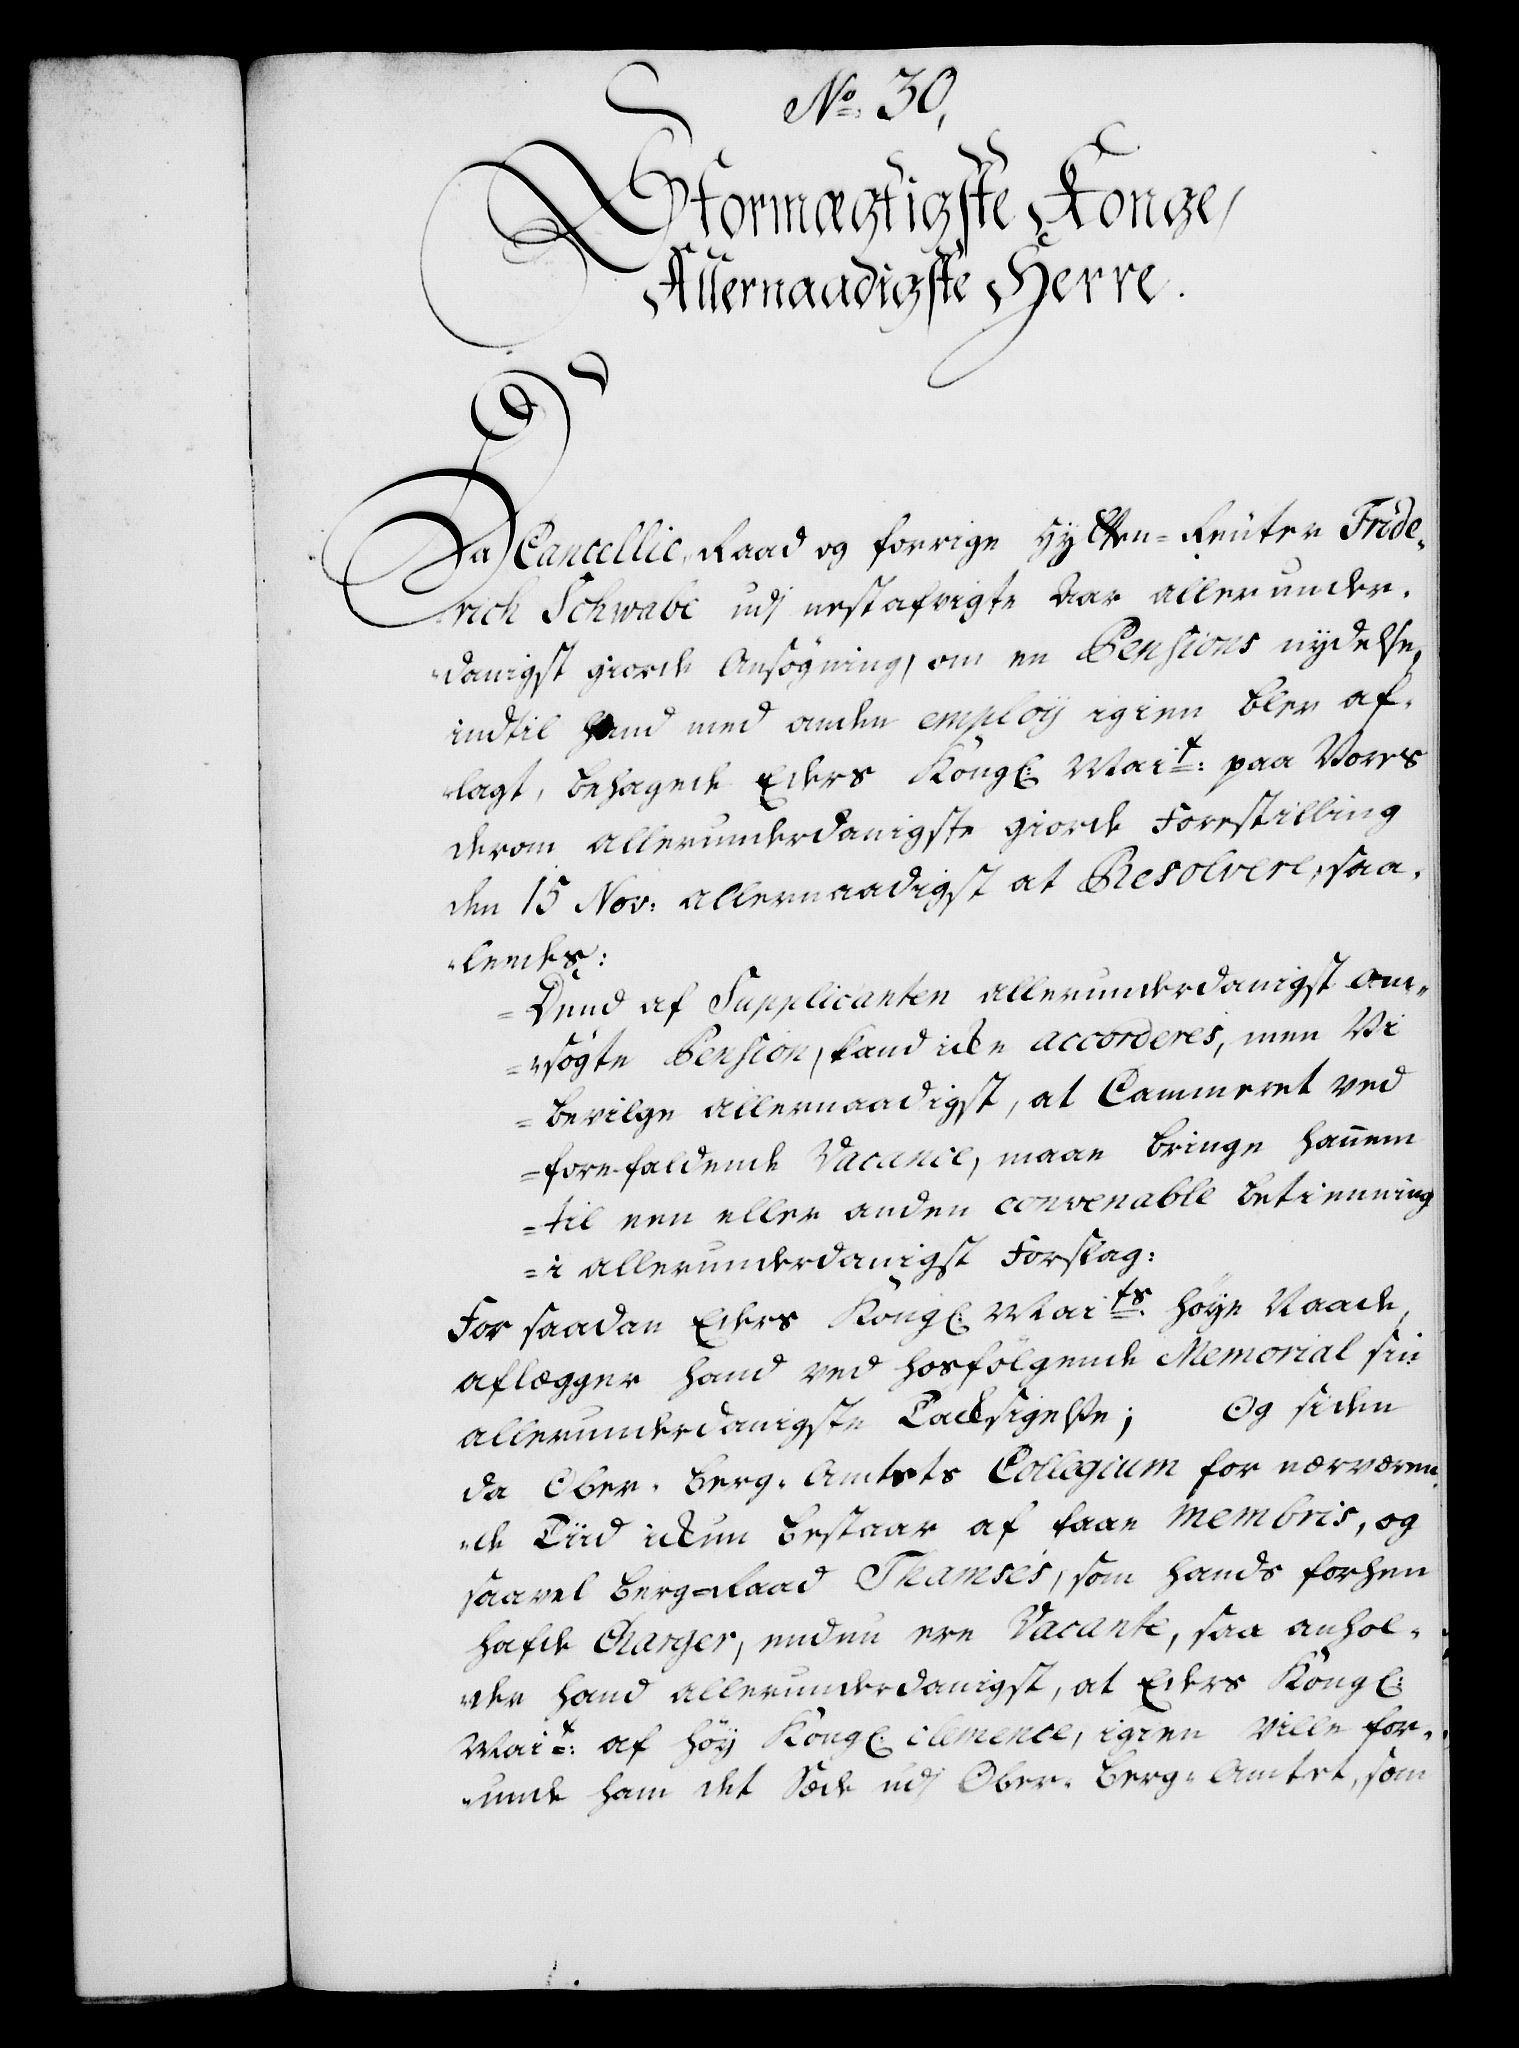 No. 30,
Stormægtigste Konge,
Allernaadigste Herre.
Da Cancellie-Raad og forrige Hytten-Reüter Fride-
-rich Schwabe udj nestafvigte Aar allerunder-
-danigst giorde Ansøgning, om en Pensions nydelse,
indtil hand med anden employ igien blev af-
-lagt, behagede Eders Kongl: Mait: paa Vores
derom allerunderdanigste giorde Forestilling
den 15 Nov: allernaadigst at Resolvere, saa-
-ledes:
=Dend af Supplicanten allerunderdanigst an-
=-søgte Pension, kand icke accorderes, men Vi
=bevilge allernaadigst, at Cammeret ved
=forefaldende Vacance, maae bringe hannem
=til een eller anden convenable betienning
=i allerunderdanigst Forslag:
For saadan Eders Kongl: Maits: høye Naade,
aflægger hand ved hosfølgende Memorial sin
allerunderdanigste Tacksigelse; Og siden
da Ober-Berg-Amtets Collegium for nærværen-
-de Tiid ickun bestaar af faae membris, og
saavel Berg-Raad Thamses, som hands forhen
hafde Charger, endnu ere Vacante, saa anhol-
-der hand allerunderdanigst, at Eders Kongl:
Mait: af høy Kongl: clemence, igien ville for-
-unde ham det Sæde udj Ober-Berg-Amtet, som